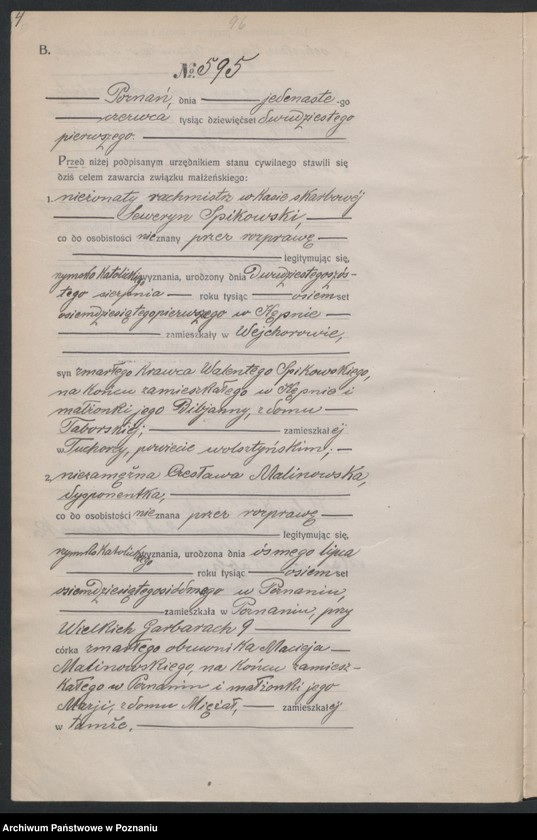 4
96
B.
No. 595
Poznań, dnia jedenaste -go
czerwca tysiąc dziewięćset dwudziestego
pierwszego.
Przed niżej podpisanym urzędnikiem stanu cywilnego stawili się
dziś celem zawarcia związku małżeńskiego:
1. nieżonaty rachmistrz w kasie skarbowej
Seweryn Spikowski,
co do osobistości nieznany przez rozprawę
legitymując się,
rzymsko katolickiego wyznania, urodzony dnia dwudziestego szós-
tego sierpnia roku tysiąc osiemset
osiemdziesiątego pierwszego w Kępnie
zamieszkały w Wejherowie,
syn zmarłego krawca Walentego Spikowskiego,
na końcu zamieszkałego w Kępnie i
małżonki jego Bibjanny, z domu
Taborskiej; zamieszkałej
w Tuchorzy, powiecie wolsztyńskim;
2. niezamężna Czesława Malinowska,
dysponentka,
co do osobistości nieznana przez rozprawę
legitymując się,
rzymsko katolickiego wyznania, urodzona dnia ósmego lipca
roku tysiąc osiemset
osiemdziesiątego siódmego w Poznaniu,
zamieszkała w Poznaniu, przy
Wielkich Garbarach 9
córka zmarłego obuwnika Macieja
Malinowskiego, na końcu zamiesz-
kałego w Poznaniu i małżonki jego
Marji, z domu zamieszkałej
w tamże.
Archiwum Państwowe w Poznaniu